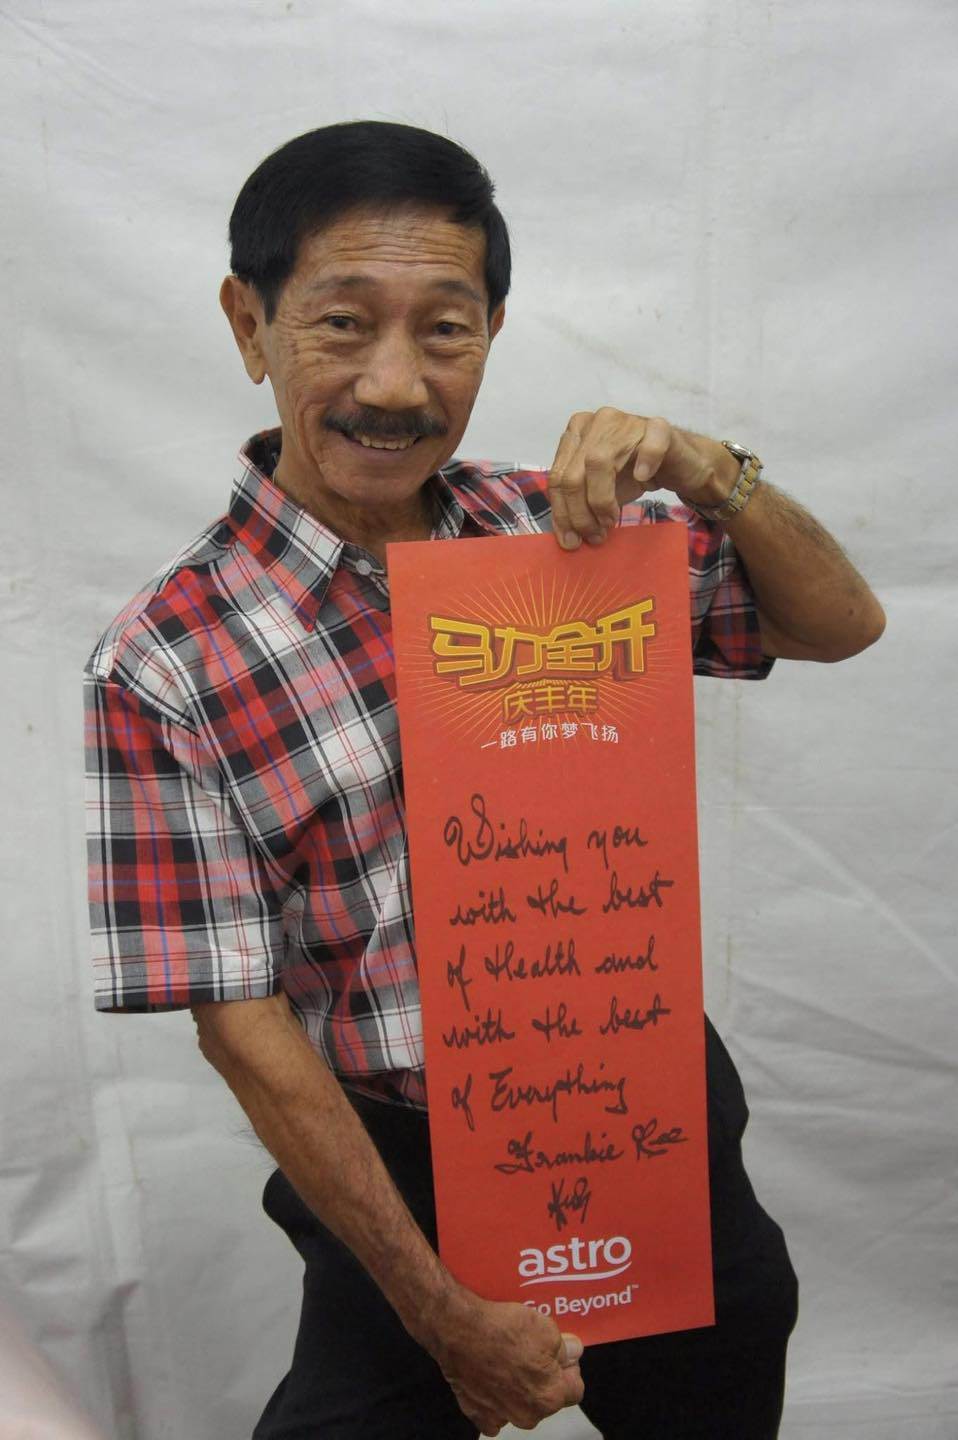 马力全开
庆丰年
一路有你梦飞扬
Wishing you
with the best
of Health and
with the best
of Everything
Frankie Lee
astro
Go Beyond™